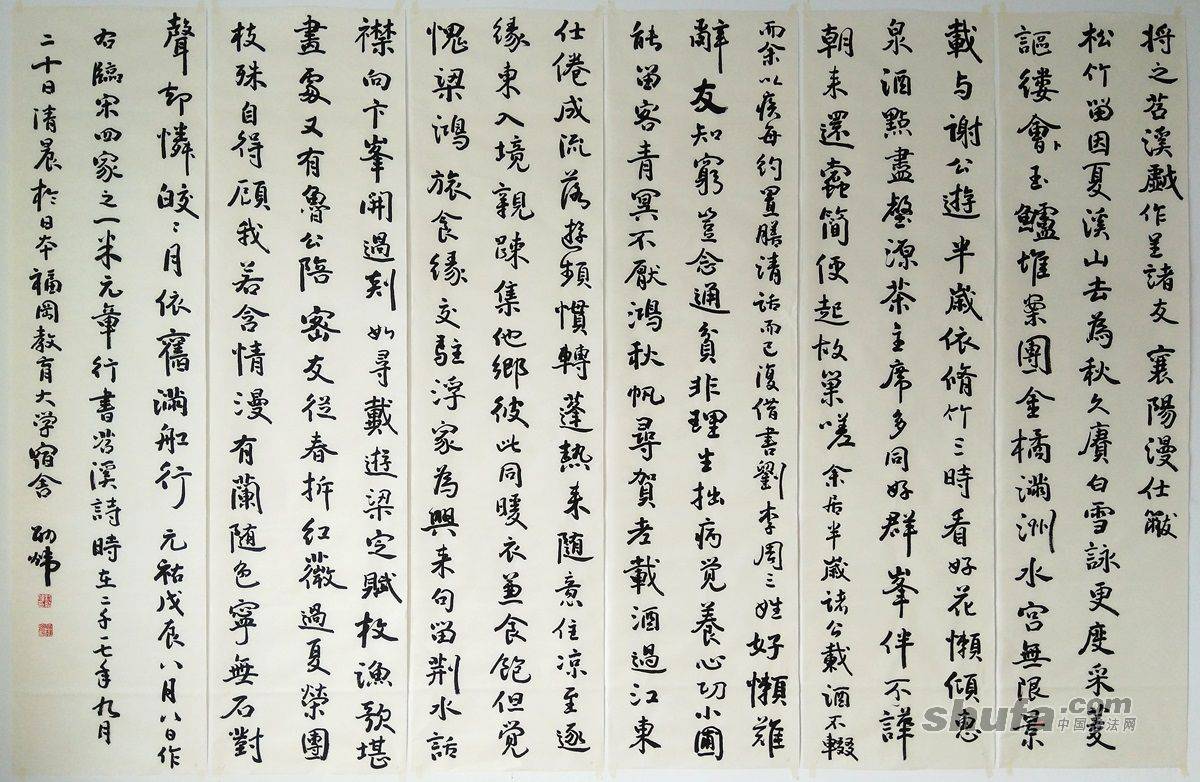 将之苕溪戲作呈諸友 襄陽漫仕黻
松竹留因夏溪山去為秋久賡白雪詠更度采菱
謳縷會〻玉鱸堆案團金橘滿洲水宫無限景
載与謝公遊 半歲依脩竹三時看好花懶傾惠
泉酒點盡壑源茶主席多同好群峯伴不譁
朝来還蠧簡便起故巢嗟 余居半歲諸公載酒不輟
而余以疾每約置膳清話而已復借書劉李周三姓 好懶難
辭友知窮豈念通貧非理生拙病覺養心功小圃
能留客青冥不厭鴻秋帆尋賀老載酒過江東
仕倦成流落遊頻慣轉蓬熱来随意住凉至逐
緣東入境親踈集他鄉彼此同暖衣兼食飽但覺
愧梁鴻 旅食緣交駐浮家為興来句留荆水話
襟向卞峯開過剡如尋戴遊梁定賦枚漁歌堪
畫處又有魯公陪 密友從春拆紅薇過夏榮團
枝殊自得顧我若含情漫有蘭随色寧無石對
聲却憐皎〻月依舊滿舩行 元祐戊辰八月八日作
右臨宋四家之一米元章行書苕溪詩時在二千一七年九月
二十日清晨於日本福岡教育大学宿舍
shufa.com
中国书法网